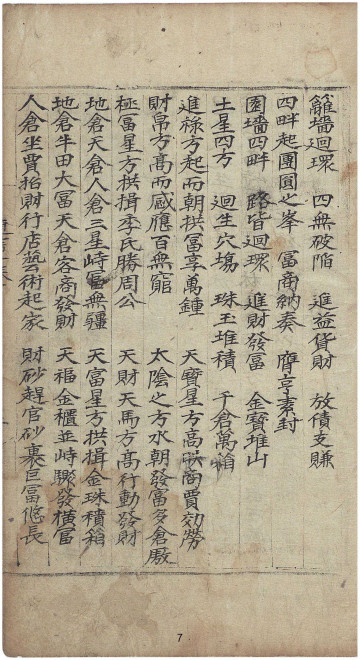 籬墻迴環 四無破陷 進益貨財 放債支賺
四畔起團圓之峯 富商納奏 膺享素封
園墻四畔 路皆迴環 進財發富 金寶堆山
土星四方 迴生穴塲 珠玉堆積 千倉萬箱
進祿方起而朝拱富享萬鍾 天寶星方高聯商賈効勞
財帛方高而感應百無窮 太陰之方水朝發富多倉廒
極富星方拱揖李氏勝周公 天財天馬方高行動發財
地倉天倉人倉三星峙富無疆 天富星方拱揖金珠積箱
地倉牛田大富天倉客商發財 天福金櫃並峙驟發横富
人倉坐賈招財行店藝術起家 財砂趕官砂裏巨冨悠長
7